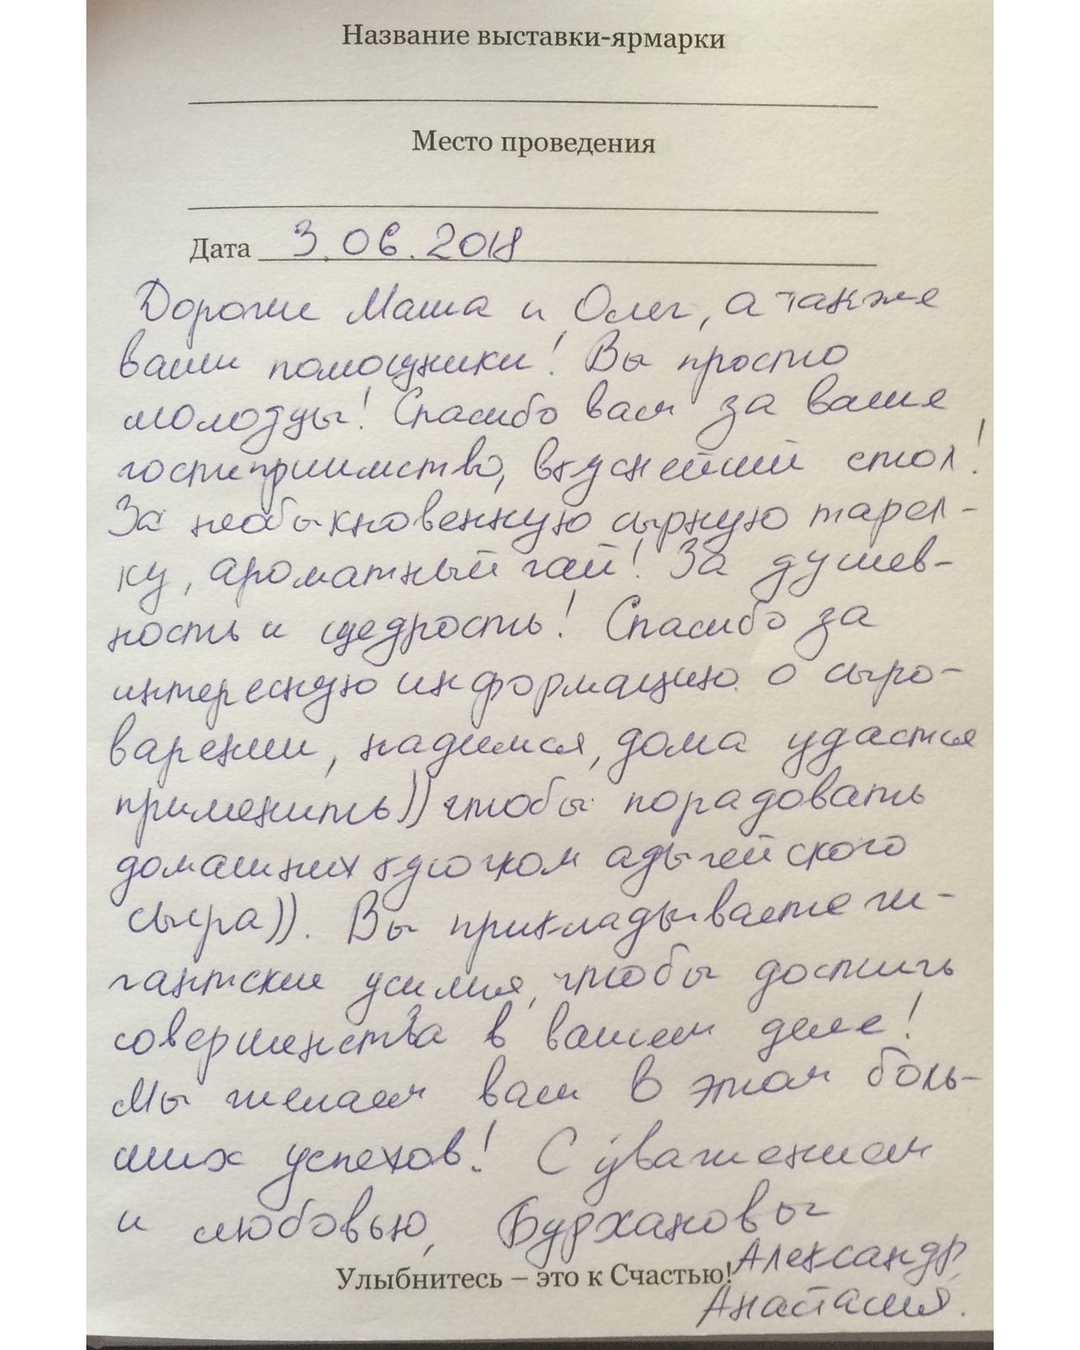 Название выставки-ярмарки
Место проведения
Дата 3.06.2018
Дорогие Маша и Олег, а также
ваши помощники! Вы просто
молодцы! Спасибо вам за ваше
гостеприимство, вкуснейший стол!
За необыкновенную сырную тарел-
ку, ароматный чай! За душев-
ность и щедрость! Спасибо за
интересную информацию о сыро-
варении, надимся, дома удастся
применить)) чтобы порадовать
домашних кусочком адыгейского
сыра)). Вы прикладываете ги-
гантские усилия, чтобы достичь
совершенства в вашем деле!
Мы желаем вам в этом боль-
ших успехов! С уважением
и любовью, Бурхановы
Александр,
Улыбнитесь – это к Счастью!
Анастасия.